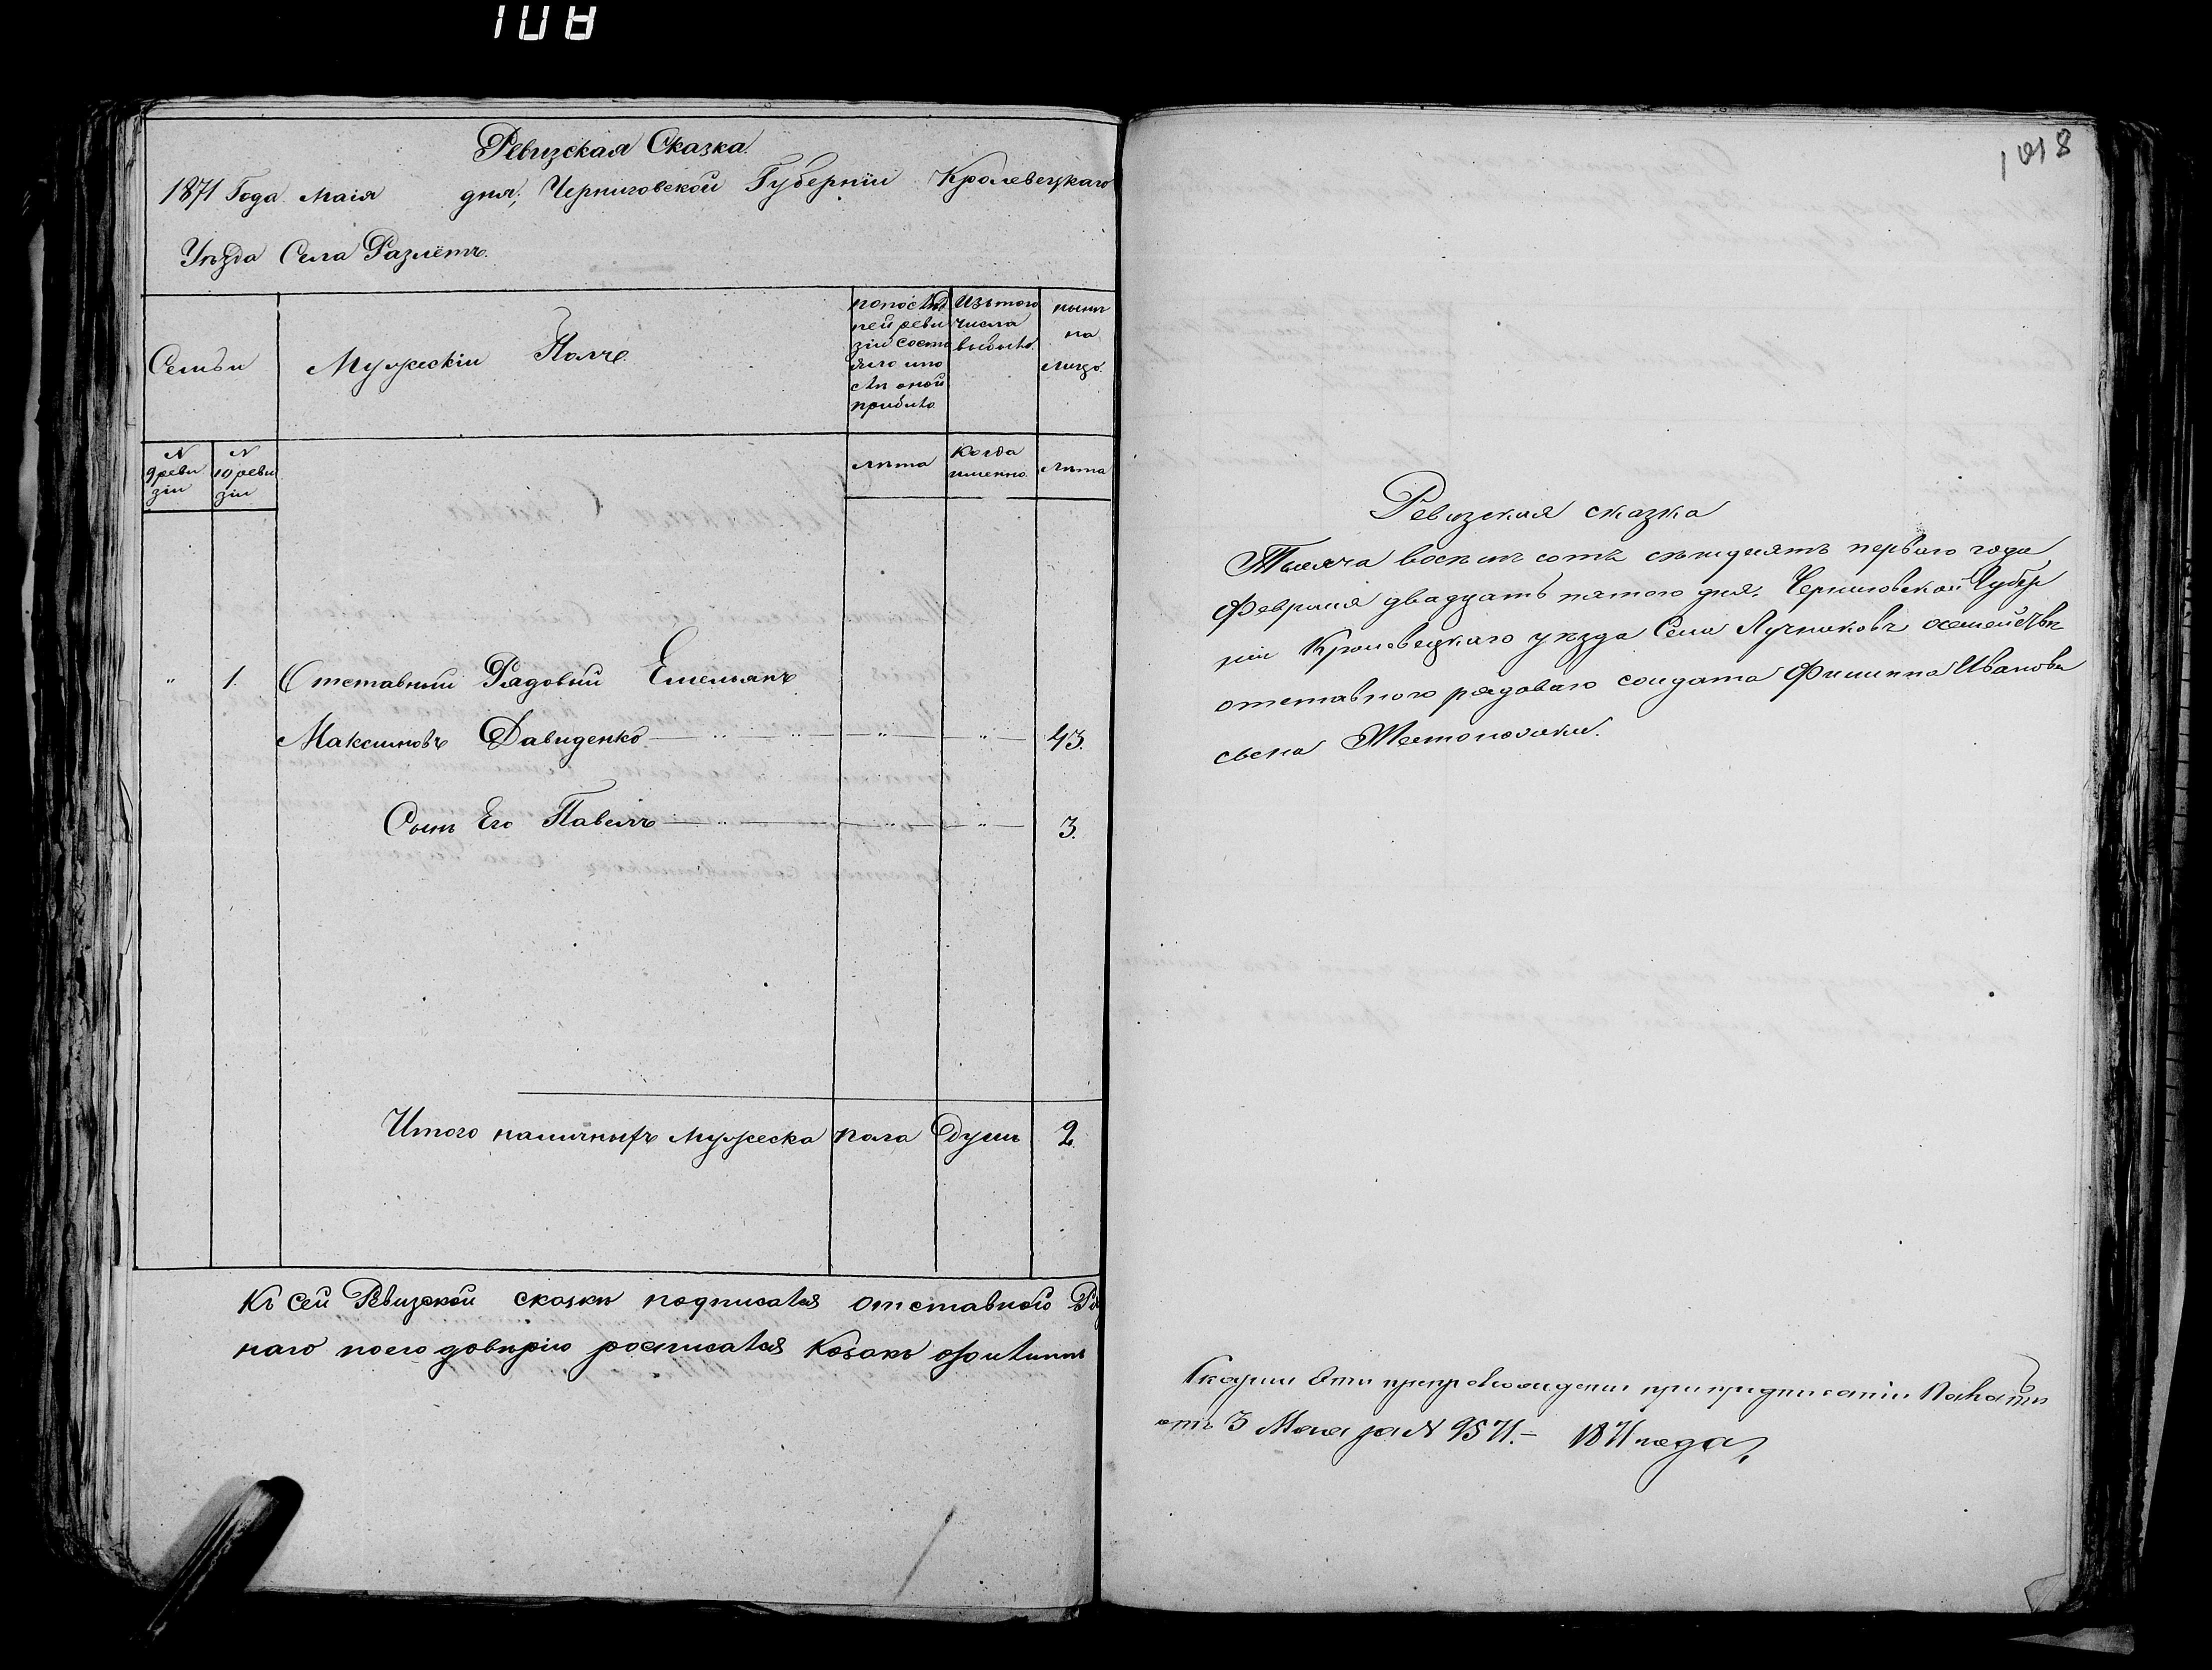 108
Ревизская Сказка.
1871 Года Маія дня, Черниговской Губерніи Кролевецкаго
Уѣзда Села Разлетъ.
Семьи
Мужескій Полъ.
по послѣд
ней реви
зіи состо
яло и по
слѣ оной
прибыло
Изъ того
числа
выбыло.
нынѣ
на
лицо.
N
9 реви
зіи
N
10 реви
зіи
лѣта
когда
именно
лѣта
" 1. Отставный Рядовый Емельянъ
Максимовъ Давиденко " " " " 43.
Сынъ Его Павелъ " " " 3.
Итого наличныхъ мужеска пола Душъ 2.
Къ сей Ревизской сказки подписался отставного Ря
наго по его довѣрію росписался Козакъ
1018
Ревизская сказка
Тысяча восемь сотъ семидесятъ перваго года
Февраля двадцать пятого дня. Черниговской Губер
ніи Кролевецкаго уѣзда Села Лучниковъ о семействѣ
отставного рядоваго солдата Филиппа Иванова
сына
Сказки эти препровождены при предписаніи Палаты
отъ 3 Мая за N 9571.- 1871 года,